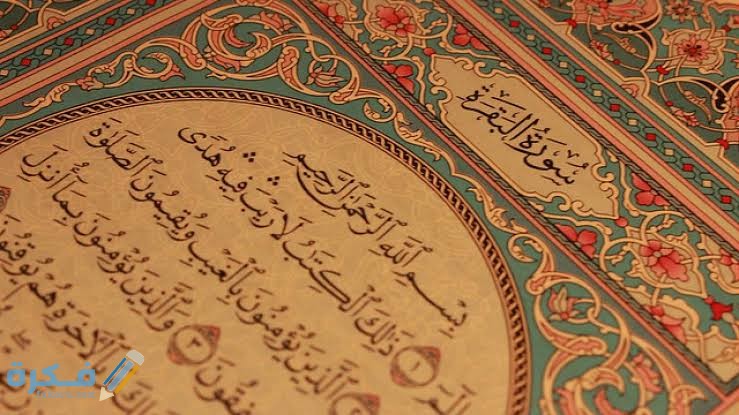 سُورَةُ البَقَرَةِ
بِسْمِ ٱللَّهِ ٱلرَّحْمَٰنِ ٱلرَّحِيمِ
الٓمٓ ١ ذَٰلِكَ ٱلْكِتَٰبُ لَا رَيْبَۛ فِيهِۛ هُدًى
ٱلَّذِينَ يُؤْمِنُونَ بِٱلْغَيْبِ وَيُقِيمُونَ ٱلصَّلَوٰةَ
٣ وَٱلَّذِينَ يُؤْمِنُونَ بِمَآ أُنزِلَ
هُمْ يُوقِنُونَ
فكرة